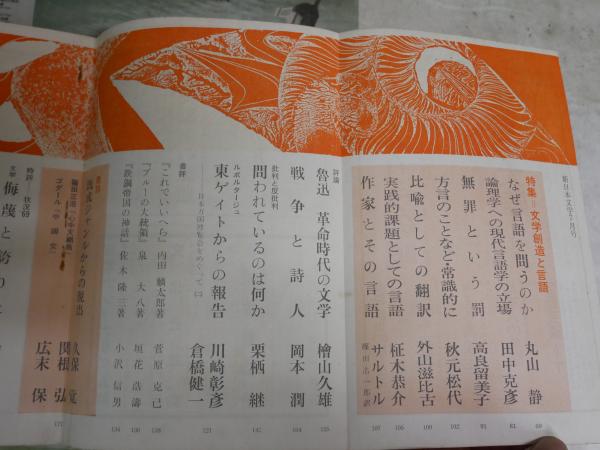 新日本文学7月号
特集＝文学創造と言語
なぜ言語を問うのか 丸山 静 69
論理学への現代言語学の立場 田中克彦 81
無罪という罰 高良留美子 91
方言のことなど・常識的に 秋元松代 102
比喩としての翻訳 外山滋比古 100
実践的課題としての言語 柾木恭介 106
作家とその言語 サルトル 107
評論
魯迅 革命時代の文学 檜山久雄 125
戦争と詩人 岡本 潤 164
批判と反批判
問われているのは何か 栗栖 継 142
ルポルタージュ
東ゲイトからの報告 川崎彰彦 倉橋健一 121
日本万国博覧会をめぐって
書評
『これでいいへら』 内田麟太郎著 菅原克己 138
『ブルーの大統領』 泉 大八著 垣花浩濤 136
『鉄鋼帝国の神話』 佐木隆三著 小沢信男 134
ジャンルからの脱出 久保 覚
篠田正浩『心中天網島』 関根 弘
ゴダール『中国女』
時評 状況69
文学 侮蔑と誇り 広末 保